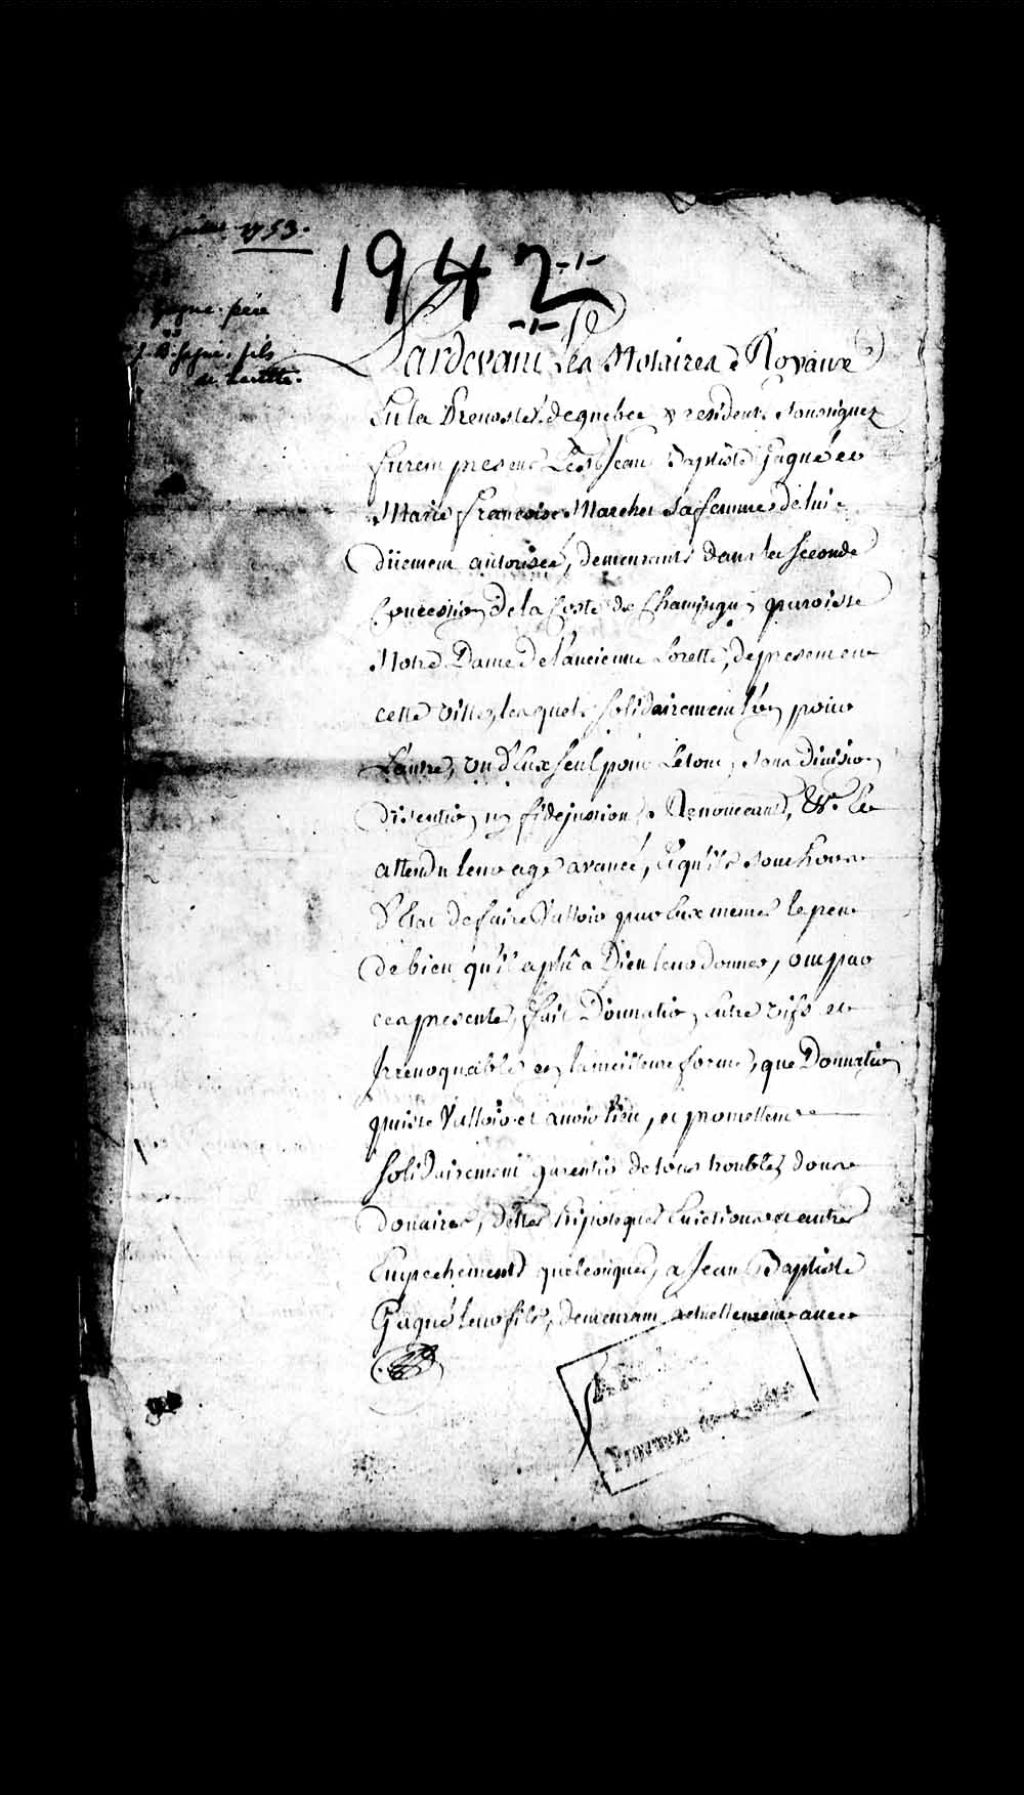 juillet 1753.
gagné père
J. B. gagné fils
de Lorette.
1942
Pardevant Les Notaires Royaux
En la Prevosté de quebec y residents soussignez
furent presens Les Sr Jean Baptiste Gagné et
Marie francoise Marchet sa femme de lui
düement autorisée, demeurants dans la seconde
Concession de la Coste de Champigny paroisse
Notre Dame de l'ancienne Lorette, de present en
cette ville, lesquels solidairement l'un pour
L'autre, un d'Eux seul pour Le tout, sans division
discution ny fidejussion Renonceant, &c. Et
attendu leur age avancé, et qu'ils sont hors
D'Etat de faire Valloir par Eux memes le peu
de bien qu'il a plû a Dieu leur donner, ont par
ces presentes fait Donnation Entre vifs et
Irrevoquable en la meilleure forme, que Donnation
puisse Valloir et avoir lieu, et promettent
solidairement garentir de tous troubles, dons
douaires, dettes hipoteques Evictions et autres
Empechements quelconques, a Jean Baptiste
Gagné leur fils, demeurant actuellement avec
Province de Québec